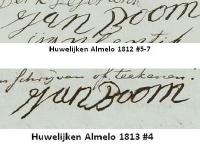 Jan Boom
Huwelijken Almelo 1812 #5-7
schrijven of teekenen.
Jan Boom
Huwelijken Almelo 1813 #4